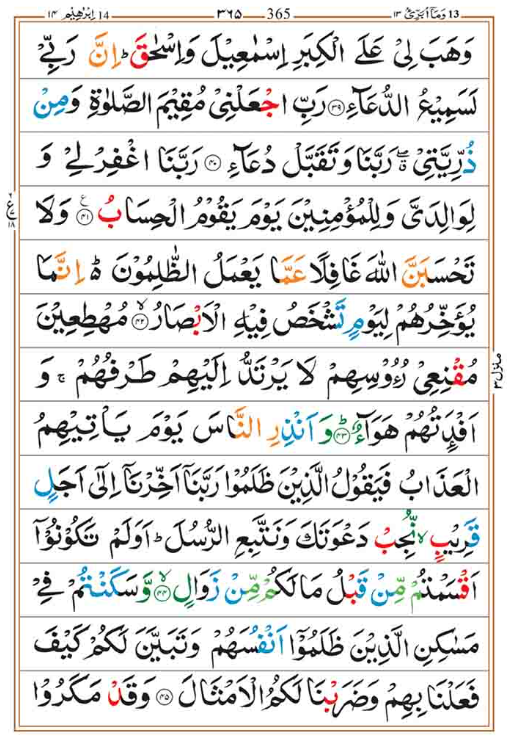 13 وَمَآ اُبَرِّئُ ١٣ 365 ٣٦٥ 14 اِبْرٰهِيْم ١٤
وَهَبَ لِيْ عَلَى الْكِبَرِ اِسْمٰعِيْلَ وَاِسْحٰقَ ؕ اِنَّ رَبِّيْ
لَسَمِيْعُ الدُّعَآءِ ﴿۳۹﴾ رَبِّ اجْعَلْنِيْ مُقِيْمَ الصَّلٰوةِ وَمِنْ
ذُرِّيَّتِيْ ۖ ۗ رَبَّنَا وَتَقَبَّلْ دُعَآءِ ﴿۴۰﴾ رَبَّنَا اغْفِرْ لِيْ وَ
لِوَالِدَيَّ وَلِلْمُؤْمِنِيْنَ يَوْمَ يَقُوْمُ الْحِسَابُ ﴿۴۱﴾ وَلَا
تَحْسَبَنَّ اللّٰهَ غَافِلًا عَمَّا يَعْمَلُ الظّٰلِمُوْنَ ؕ۬ اِنَّمَا
يُؤَخِّرُهُمْ لِيَوْمٍ تَشْخَصُ فِيْهِ الْاَبْصَارُ ﴿۴۲﴾ مُهْطِعِيْنَ
مُقْنِعِيْ رُءُوْسِهِمْ لَا يَرْتَدُّ اِلَيْهِمْ طَرْفُهُمْ ۚ وَ
اَفْـِٕدَتُهُمْ هَوَآءٌ ﴿۴۳﴾ وَاَنْذِرِ النَّاسَ يَوْمَ يَاْتِيْهِمُ
الْعَذَابُ فَيَقُوْلُ الَّذِيْنَ ظَلَمُوْا رَبَّنَآ اَخِّرْنَآ اِلٰٓى اَجَلٍ
قَرِيْبٍ ۙ نُّجِبْ دَعْوَتَكَ وَنَتَّبِعِ الرُّسُلَ ؕ اَوَلَمْ تَكُوْنُوْٓا
اَقْسَمْتُمْ مِّنْ قَبْلُ مَا لَكُمْ مِّنْ زَوَالٍ ﴿۴۴﴾ وَّسَكَنْتُمْ فِيْ
مَسٰكِنِ الَّذِيْنَ ظَلَمُوْٓا اَنْفُسَهُمْ وَتَبَيَّنَ لَكُمْ كَيْفَ
فَعَلْنَا بِهِمْ وَضَرَبْنَا لَكُمُ الْاَمْثَالَ ﴿۴۵﴾ وَقَدْ مَكَرُوْا
منزل ٣